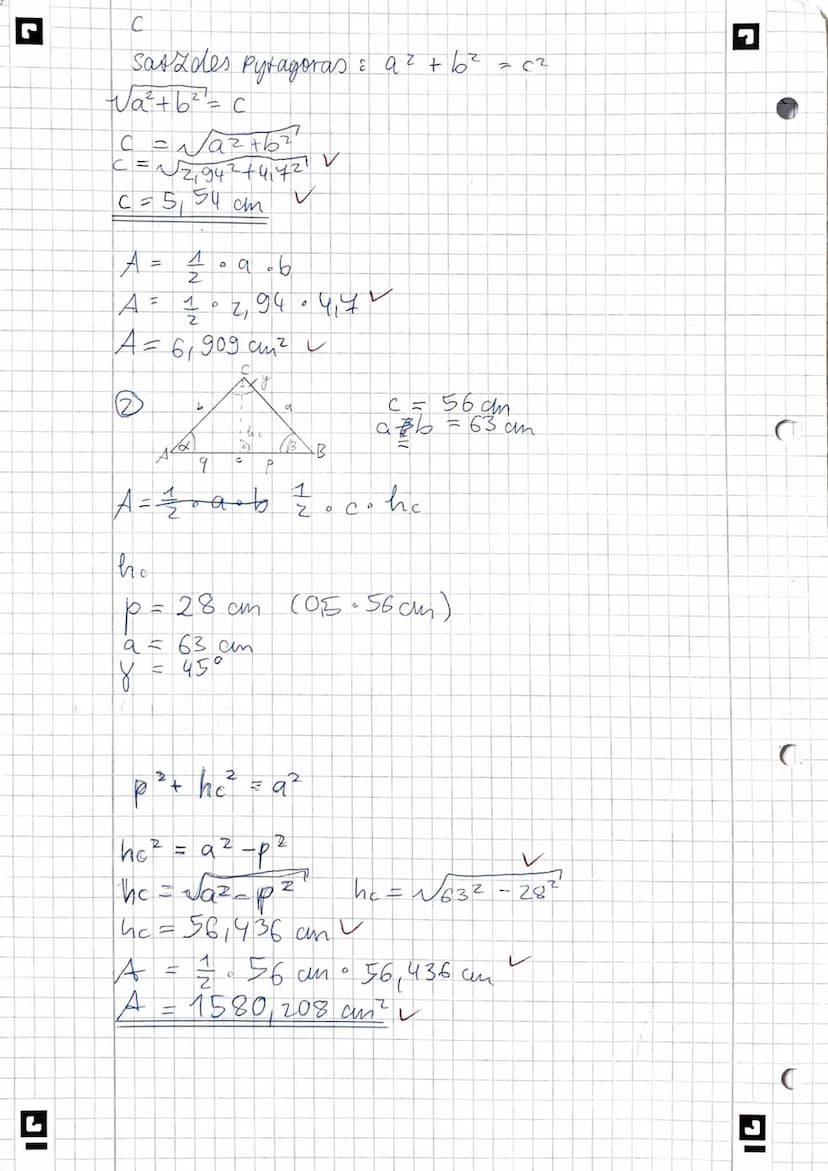 C
Satz des Pytagoras : a² + b² = c²
√a²+b² = c
c = √a²+b²
c = √2,94²+4,7²
c = 5,54 cm
A = 1/2 · a · b
A = 1/2 · 2,94 · 4,7
A = 6,909 cm²
② C γ b a hc α β A B q c p
c = 56 cm
a = b = 63 cm
A = 1/2 · a · b 1/2 · c · hc
hc
p = 28 cm (0,5 · 56 cm)
a = 63 cm
γ = 45°
p² + hc² = a²
hc² = a² - p²
hc = √a² - p² hc = √63² - 28²
hc = 56,436 cm
A = 1/2 · 56 cm · 56,436 cm
A = 1580,208 cm²